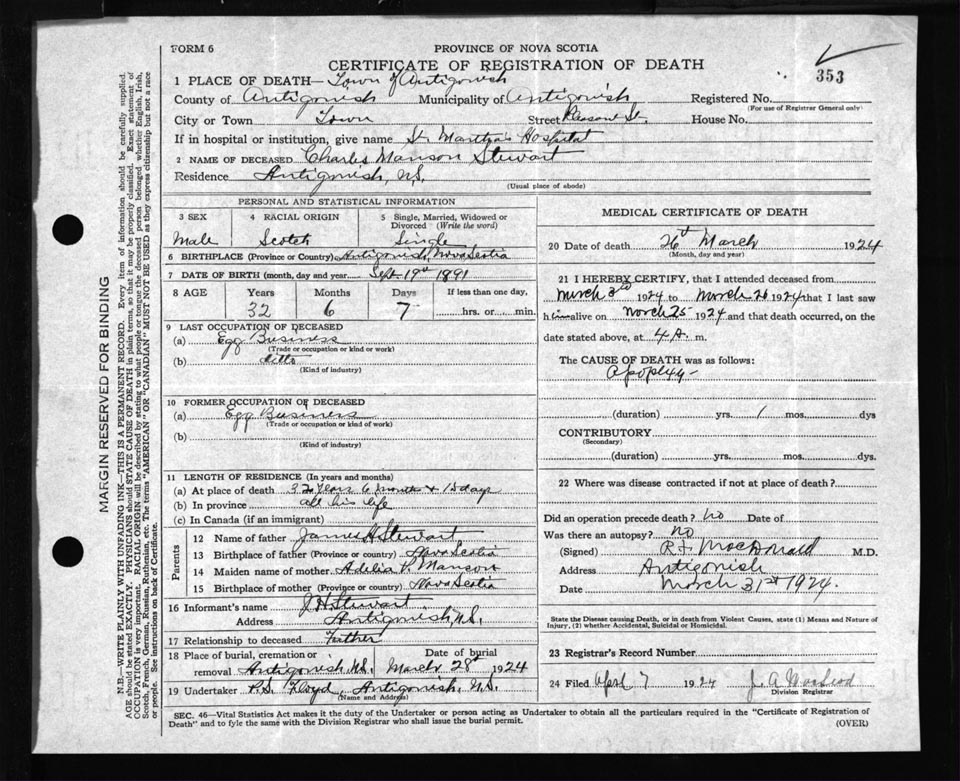 FORM 6
PROVINCE OF NOVA SCOTIA
CERTIFICATE OF REGISTRATION OF DEATH
353
1 PLACE OF DEATH—Town of Antigonish
County of Antigonish Municipality of Antigonish Registered No.
(For use of Registrar General only)
City or Town Town Street Pleasant St. House No.
If in hospital or institution, give name St. Martha's Hospital
2 NAME OF DECEASED Charles Manson Stewart
Residence Antigonish, N.S.
(Usual place of abode)
PERSONAL AND STATISTICAL INFORMATION
3 SEX 4 RACIAL ORIGIN 5 Single, Married, Widowed or Divorced (Write the word)
Male Scotch Single
6 BIRTHPLACE (Province or Country) Antigonish, Nova Scotia
7 DATE OF BIRTH (month, day and year) Sept. 19th 1891
8 AGE Years Months Days If less than one day,
32 6 7 hrs. or min.
9 LAST OCCUPATION OF DECEASED
(a) Egg Business
(Trade or occupation or kind or work)
(b) ditto
(Kind of industry)
10 FORMER OCCUPATION OF DECEASED
(a) Egg Business
(Trade or occupation or kind of work)
(b)
(Kind of industry)
11 LENGTH OF RESIDENCE (In years and months)
(a) At place of death 32 years 6 months & days
(b) In province all his life
(c) In Canada (if an immigrant)
Parents
12 Name of father James H Stewart
13 Birthplace of father (Province or country) Nova Scotia
14 Maiden name of mother Adelia P. Manson
15 Birthplace of mother (Province or country) Nova Scotia
16 Informant's name J H Stewart
Address Antigonish, N.S.
17 Relationship to deceased Father
18 Place of burial, cremation or removal Antigonish N.S. Date of burial March 28th 1924
19 Undertaker Floyd, Antigonish, N.S.
(Name and Address)
MEDICAL CERTIFICATE OF DEATH
20 Date of death 26th March 1924
(Month, day and year)
21 I HEREBY CERTIFY, that I attended deceased from
March 3rd 1924 to March 26 1924 that I last saw
him alive on March 25 1924 and that death occurred, on the
date stated above, at 4 A. m.
The CAUSE OF DEATH was as follows:
Apoplexy
(duration) yrs. 1 mos. dys
CONTRIBUTORY
(Secondary)
(duration) yrs. mos. dys.
22 Where was disease contracted if not at place of death?
Did an operation precede death? No Date of
Was there an autopsy? No
(Signed) R F MacDonald M.D.
Address Antigonish
Date March 31st 1924.
State the Disease causing Death, or in death from Violent Causes, state (1) Means and Nature of
Injury, (2) whether Accidental, Suicidal or Homicidal.
23 Registrar's Record Number
24 Filed April 7 1924 J. A MacLeod
Division Registrar
SEC. 46—Vital Statistics Act makes it the duty of the Undertaker or person acting as Undertaker to obtain all the particulars required in the "Certificate of Registration of
Death" and to fyle the same with the Division Registrar who shall issue the burial permit.
(OVER)
MARGIN RESERVED FOR BINDING
N.B.—WRITE PLAINLY WITH UNFADING INK—THIS IS A PERMANENT RECORD. Every item of information should be carefully supplied.
AGE should be stated EXACTLY. PHYSICIANS should STATE CAUSE OF DEATH in plain terms, so that it may be properly classified. Exact statement of
OCCUPATION is very important. RACIAL ORIGIN will be described by stating to what people or tongue the deceased person belonged whether English, Irish,
Scotch, French, German, Russian, Ruthenian, etc. The terms "AMERICAN" OR "CANADIAN" MUST NOT BE USED as they express citizenship but not a race
or people. See instructions on back of Certificate.